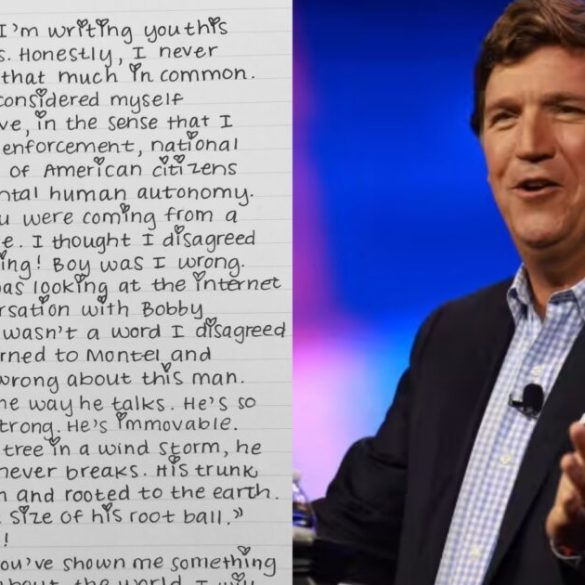 I'm writing you this
s. Honestly, I never
that much in common.
considered myself
ve, in the sense that I
enforcement, national
of American citizens
ntal human autonomy.
u were coming from a
e. I thought I disagreed
ing! Boy was I wrong.
as looking at the internet
ersation with Bobby
wasn't a word I disagreed
rned to Montel and
wrong about this man.
he way he talks. He's so
trong. He's immovable.
tree in a wind storm, he
never breaks. His trunk
n and rooted to the earth.
size of his root ball."
!
you've shown me something
about the world I